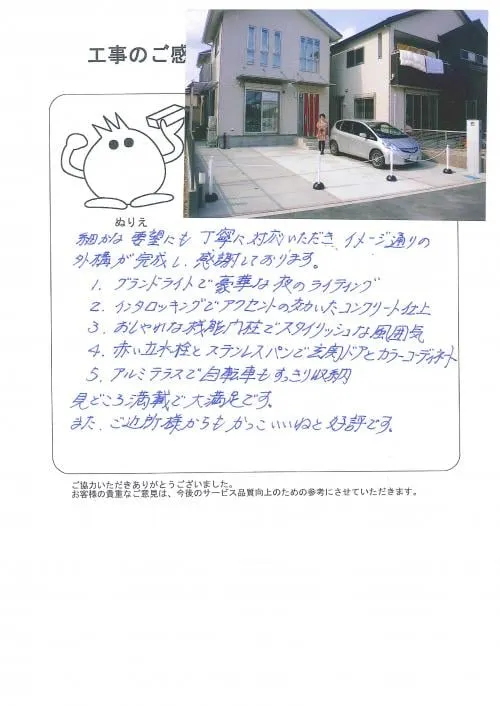 工事のご感
ぬりえ
細かな要望にも丁寧に対応いただき、イメージ通りの
外構が完成し、感謝しております。
1. グランドライトで豪華な夜のライティング
2. インタロッキングでアクセントの効いたコンクリート仕上
3. おしゃれな機能門柱でスタイリッシュな風囲気
4. 赤い立水栓とステンレスパンで玄関ドアとカラーコーディネート
5. アルミテラスで自転車もすっきり収納
見どころ満載で大満足です。
また、ご近所様からもかっこいいねと好評です。
ご協力いただきありがとうございました。
お客様の貴重なご意見は、今後のサービス品質向上のための参考にさせていただきます。